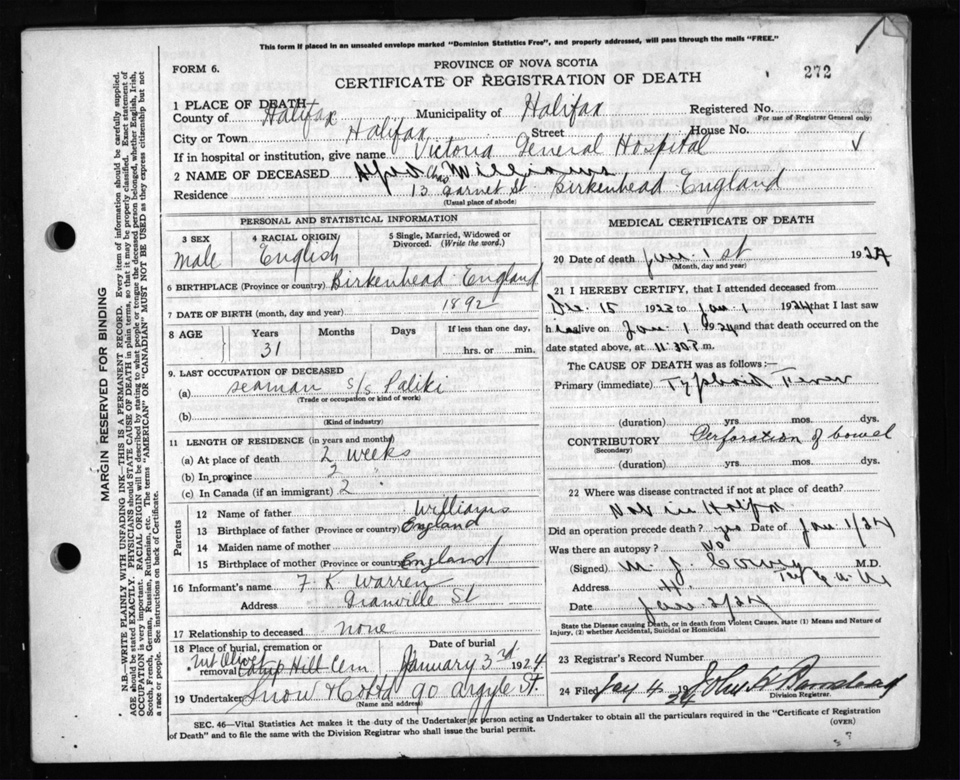 This form if placed in an unsealed envelope marked "Dominion Statistics Free", and properly addressed, will pass through the mails "FREE."
FORM 6.
PROVINCE OF NOVA SCOTIA
CERTIFICATE OF REGISTRATION OF DEATH
272
1 PLACE OF DEATH
County of Halifax Municipality of Halifax Registered No.
(For use of Registrar General only)
City or Town Halifax Street House No.
If in hospital or institution, give name Victoria General Hospital
2 NAME OF DECEASED Alfred Chas Williams
Residence 13 Garnet St. Birkenhead England
(Usual place of abode)
PERSONAL AND STATISTICAL INFORMATION
3 SEX
male
4 RACIAL ORIGIN
English
5 Single, Married, Widowed or Divorced. (Write the word.)
6 BIRTHPLACE (Province or country) Birkenhead England
7 DATE OF BIRTH (month, day and year) 1892
8 AGE Years Months Days If less than one day,
31 hrs. or min.
9. LAST OCCUPATION OF DECEASED
(a) seaman s/s Paliki
(Trade or occupation or kind of work)
(b)
(Kind of industry)
11 LENGTH OF RESIDENCE (in years and months)
(a) At place of death 2 weeks
(b) In province 2 "
(c) In Canada (if an immigrant) 2 "
Parents
12 Name of father Williams
13 Birthplace of father (Province or country) England
14 Maiden name of mother
15 Birthplace of mother (Province or country) England
16 Informant's name F K Warren
Address Granville St
17 Relationship to deceased none
18 Place of burial, cremation or removal Mt Olivet Camp Hill Cem
Date of burial
January 3rd 1924
19 Undertaker Snow & Co Ltd 90 Argyle St.
(Name and address)
MEDICAL CERTIFICATE OF DEATH
20 Date of death Jan. 1st 1924
(Month, day and year)
21 I HEREBY CERTIFY, that I attended deceased from
Dec. 15 1923 to Jan. 1 1924 that I last saw
h im alive on Jan 1 1924 and that death occurred on the
date stated above, at 11.30 P.m.
The CAUSE OF DEATH was as follows:—
Primary (immediate) Typhoid Fever
(duration) yrs. mos. dys.
CONTRIBUTORY Perforation of bowel
(Secondary)
(duration) yrs. mos. dys.
22 Where was disease contracted if not at place of death?
Not in Halifax
Did an operation precede death? yes Date of Jan 1/24
Was there an autopsy? No
(Signed) M. J. M.D.
Address
Date Jan 2/24
State the disease causing Death, or in death from Violent Causes, state (1) Means and Nature of Injury, (2) whether Accidental, Suicidal or Homicidal.
23 Registrar's Record Number
24 Filed Jany 4 1924
Division Registrar.
SEC. 46—Vital Statistics Act makes it the duty of the Undertaker or person acting as Undertaker to obtain all the particulars required in the "Certificate of Registration of Death" and to file the same with the Division Registrar who shall issue the burial permit.
(OVER)
MARGIN RESERVED FOR BINDING
N.B.—WRITE PLAINLY WITH UNFADING INK—THIS IS A PERMANENT RECORD. Every item of information should be carefully supplied.
AGE should be stated EXACTLY. PHYSICIANS should STATE CAUSE OF DEATH in plain terms, so that it may be properly classified. Exact statement of
OCCUPATION is very important. RACIAL ORIGIN will be described by stating to what people or tongue the deceased person belonged, whether English, Irish,
Scotch, French, German, Russian, Ruthenian, etc. The terms "AMERICAN" OR "CANADIAN" MUST NOT BE USED as they express citizenship but not
a race or people. See instructions on back of Certificate.